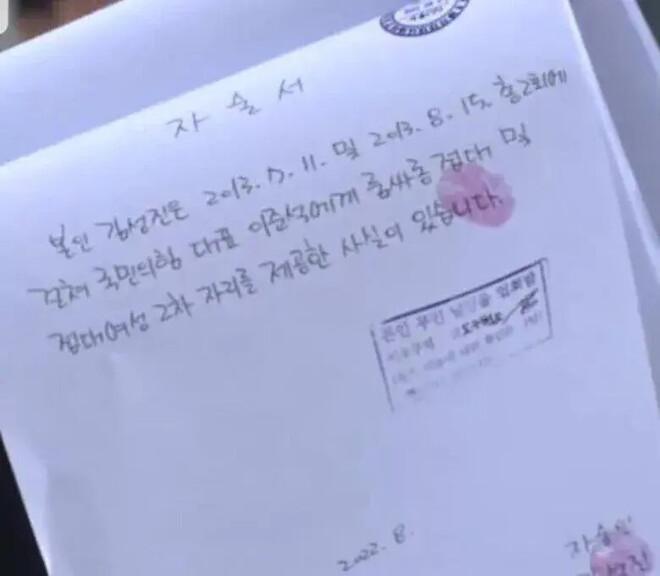 자술서
본인 김성진은 2013. 7. 11. 및 2013. 8. 15, 총2회에
걸쳐 국민의힘 대표 이준석에게 룸싸롱 접대 및
접대여성 2차 자리를 제공한 사실이 있습니다.
본인 무인
2022. 8.
자술인
김성진